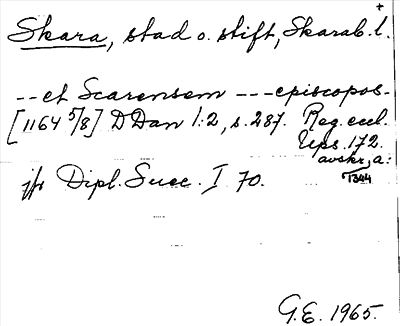 Skara, stad o. stift, Skarab. l.
-- et Scarensem --- episcopos -
[1164 5/8] D Dan 1:2, s. 287. Reg. eccl.
Ups. 172.
avskr. a:
1344
jfr Dipl. Suec. I 70.
G.E. 1965.